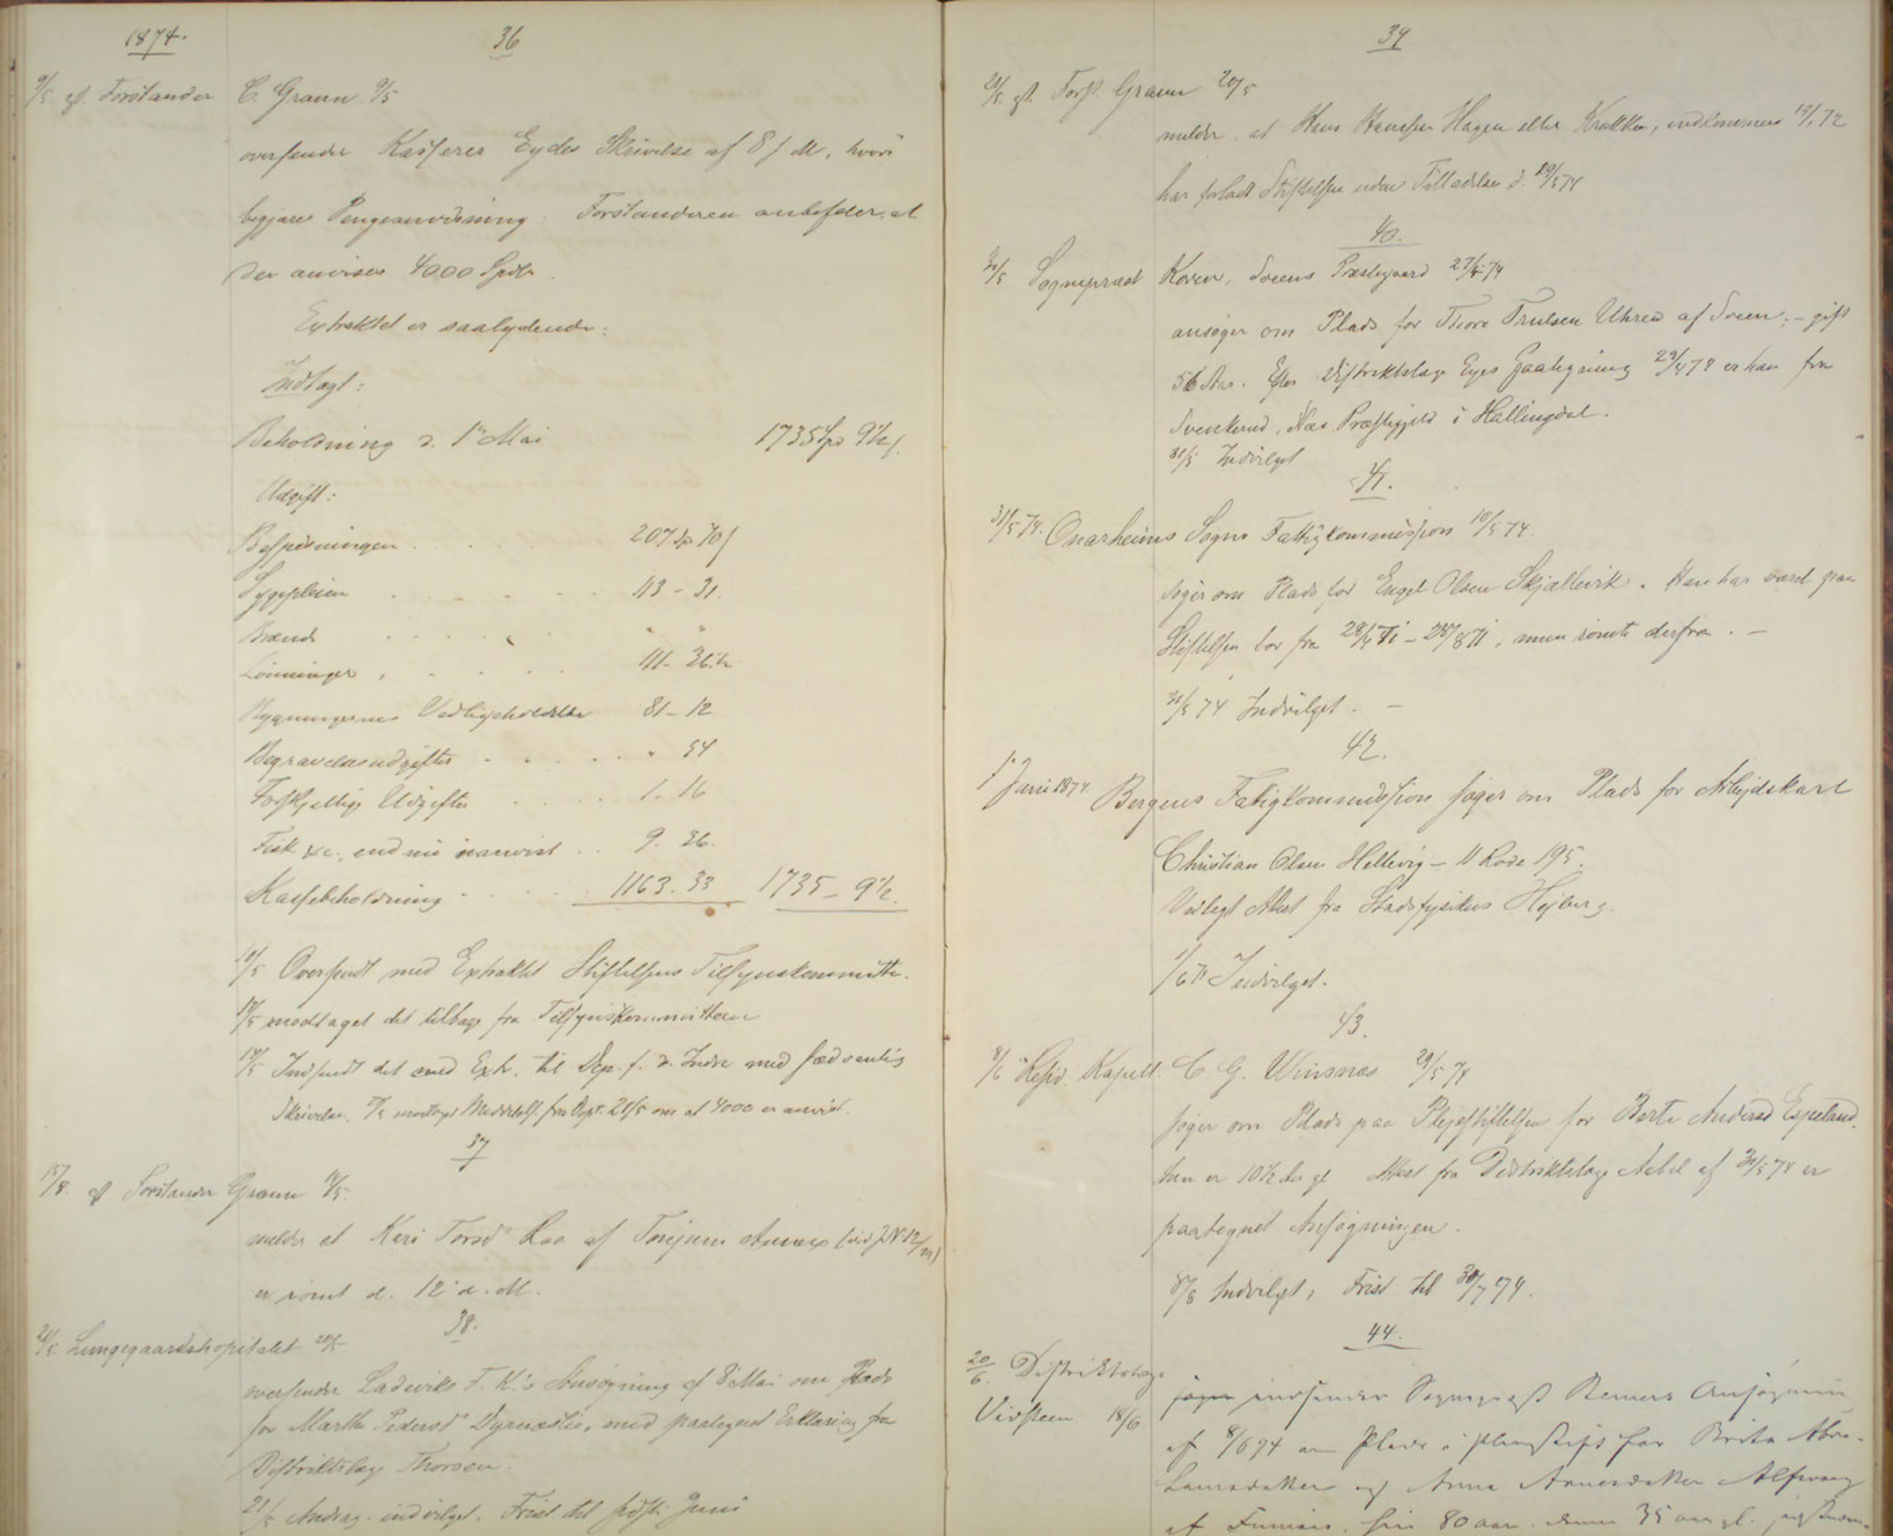 1874.
36
9/5 gf. Forstander C. Grann 9/5
oversender Kasserer Eydes Skrivelse af 8 f. M., hvori
begjæres Pengeanvisning. Forstanderen anbefaler, at
der anvises 4000 Spdlr.
Extraktet er saalydende:
Indtægt:
Beholdning d. 1ste Mai 1735 Spd 9½ f.
Udgift:
Bespisningen . . . 207 Sp 70 f
Sygepleien . . . . . 113 - 31.
Brænde . . . . . " "
Lønninger . . . . .
Bygningernes Vedligeholdelse 81 - 12
Begravelsesudgifter . . . . . " 54
Forskjellige Udgifter . . . . 1. 16
Fisk &c., endnu uanvist . . 9. 36.
Kassebeholdning . . . . . 1163. 33 1735 - 9½.
10/5 Oversendt med Extraktet Stiftelsens Tilsynskommitte.
modtaget det tilbage fra Tilsynskommitteen
Indsendt det med Extr. til Dep. f. d. Indre med sædvanlig
Skrivelse. modtaget Meddelelse fra Dept. 21/5 om at 4000 er anvist.
37
Forstander Grann
melder at Kari Torsdr Raa af Tonjum Annex
er rømt d. 12te d. M.
38.
21/5. Lungegaardshospitalet 20/5
oversender Ladeviks F. K.'s Ansøgning af 8 Mai om Plads
for Marthe Pedersdr Dyrnæslie, med paategnet Erklæring fra
Distriktslæge Thoresen.
21/5 Andrag. indvilget. Frist til sidste Juni
39
21/5. gf. Forst. Grann 20/5
melder, at Hans Hansen Hagen eller Krakken, indkommen
har forladt Stiftelsen uden Tilladelse d. 19/5 74
40.
Sogneprest Koren, Soeens Præstegaard
ansøger om Plads for Thore Trulsen Uhren af Soeen; - gift
56 Aar. Efter Distriktslæge Eyes Paategning er han fra
Svenkerud, Næs Præstegjeld i Hallingdal.
31/5 Indvilget
41.
31/5 74. Onarheims Sogns Fattigkommission 16/5 74.
søger om Plads for Engel Olsen Skjællevik. Han har været paa
Stiftelsen før fra men rømte derfra. -
31/5 74 Indvilget. -
42.
1ste Juni 1874. Bergens Fatigkommission søger om Plads for Arbejdskarl
Christian Olsen Hellevig - 11 Rode 195.
Vedlagt Attest fra Stadsfysikus Hojberg.
Indvilget.
43.
8/6 Resid. Kapell. C. G. Winsnes
søger om Plads paa Plejestiftelsen for Berte Andersd Espeland.
hun er 10½ Aar gl. Attest fra Distriktslæge Nebel af er
paategnet Ansøgningen.
Indvilget, Frist til
44.
20/6. Distriktslæge
Vidsteen 18/6.
indsender Sogneprest Ansøgning
af 8/6 74 om Plads i for Brita Abra-
hamsdatter og Anna Arnesdatter
80 aar. 35 aar gl.